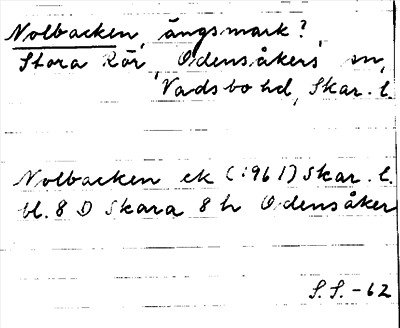 Nolbacken, ängsmark?,
Stora Rör, Odensåkers sn,
Vadsbo hd, Skar. l.
Nolbacken ek (1961) Skar. l.
bl. 8 D Skara 8 h Odensåker
S.S. -62